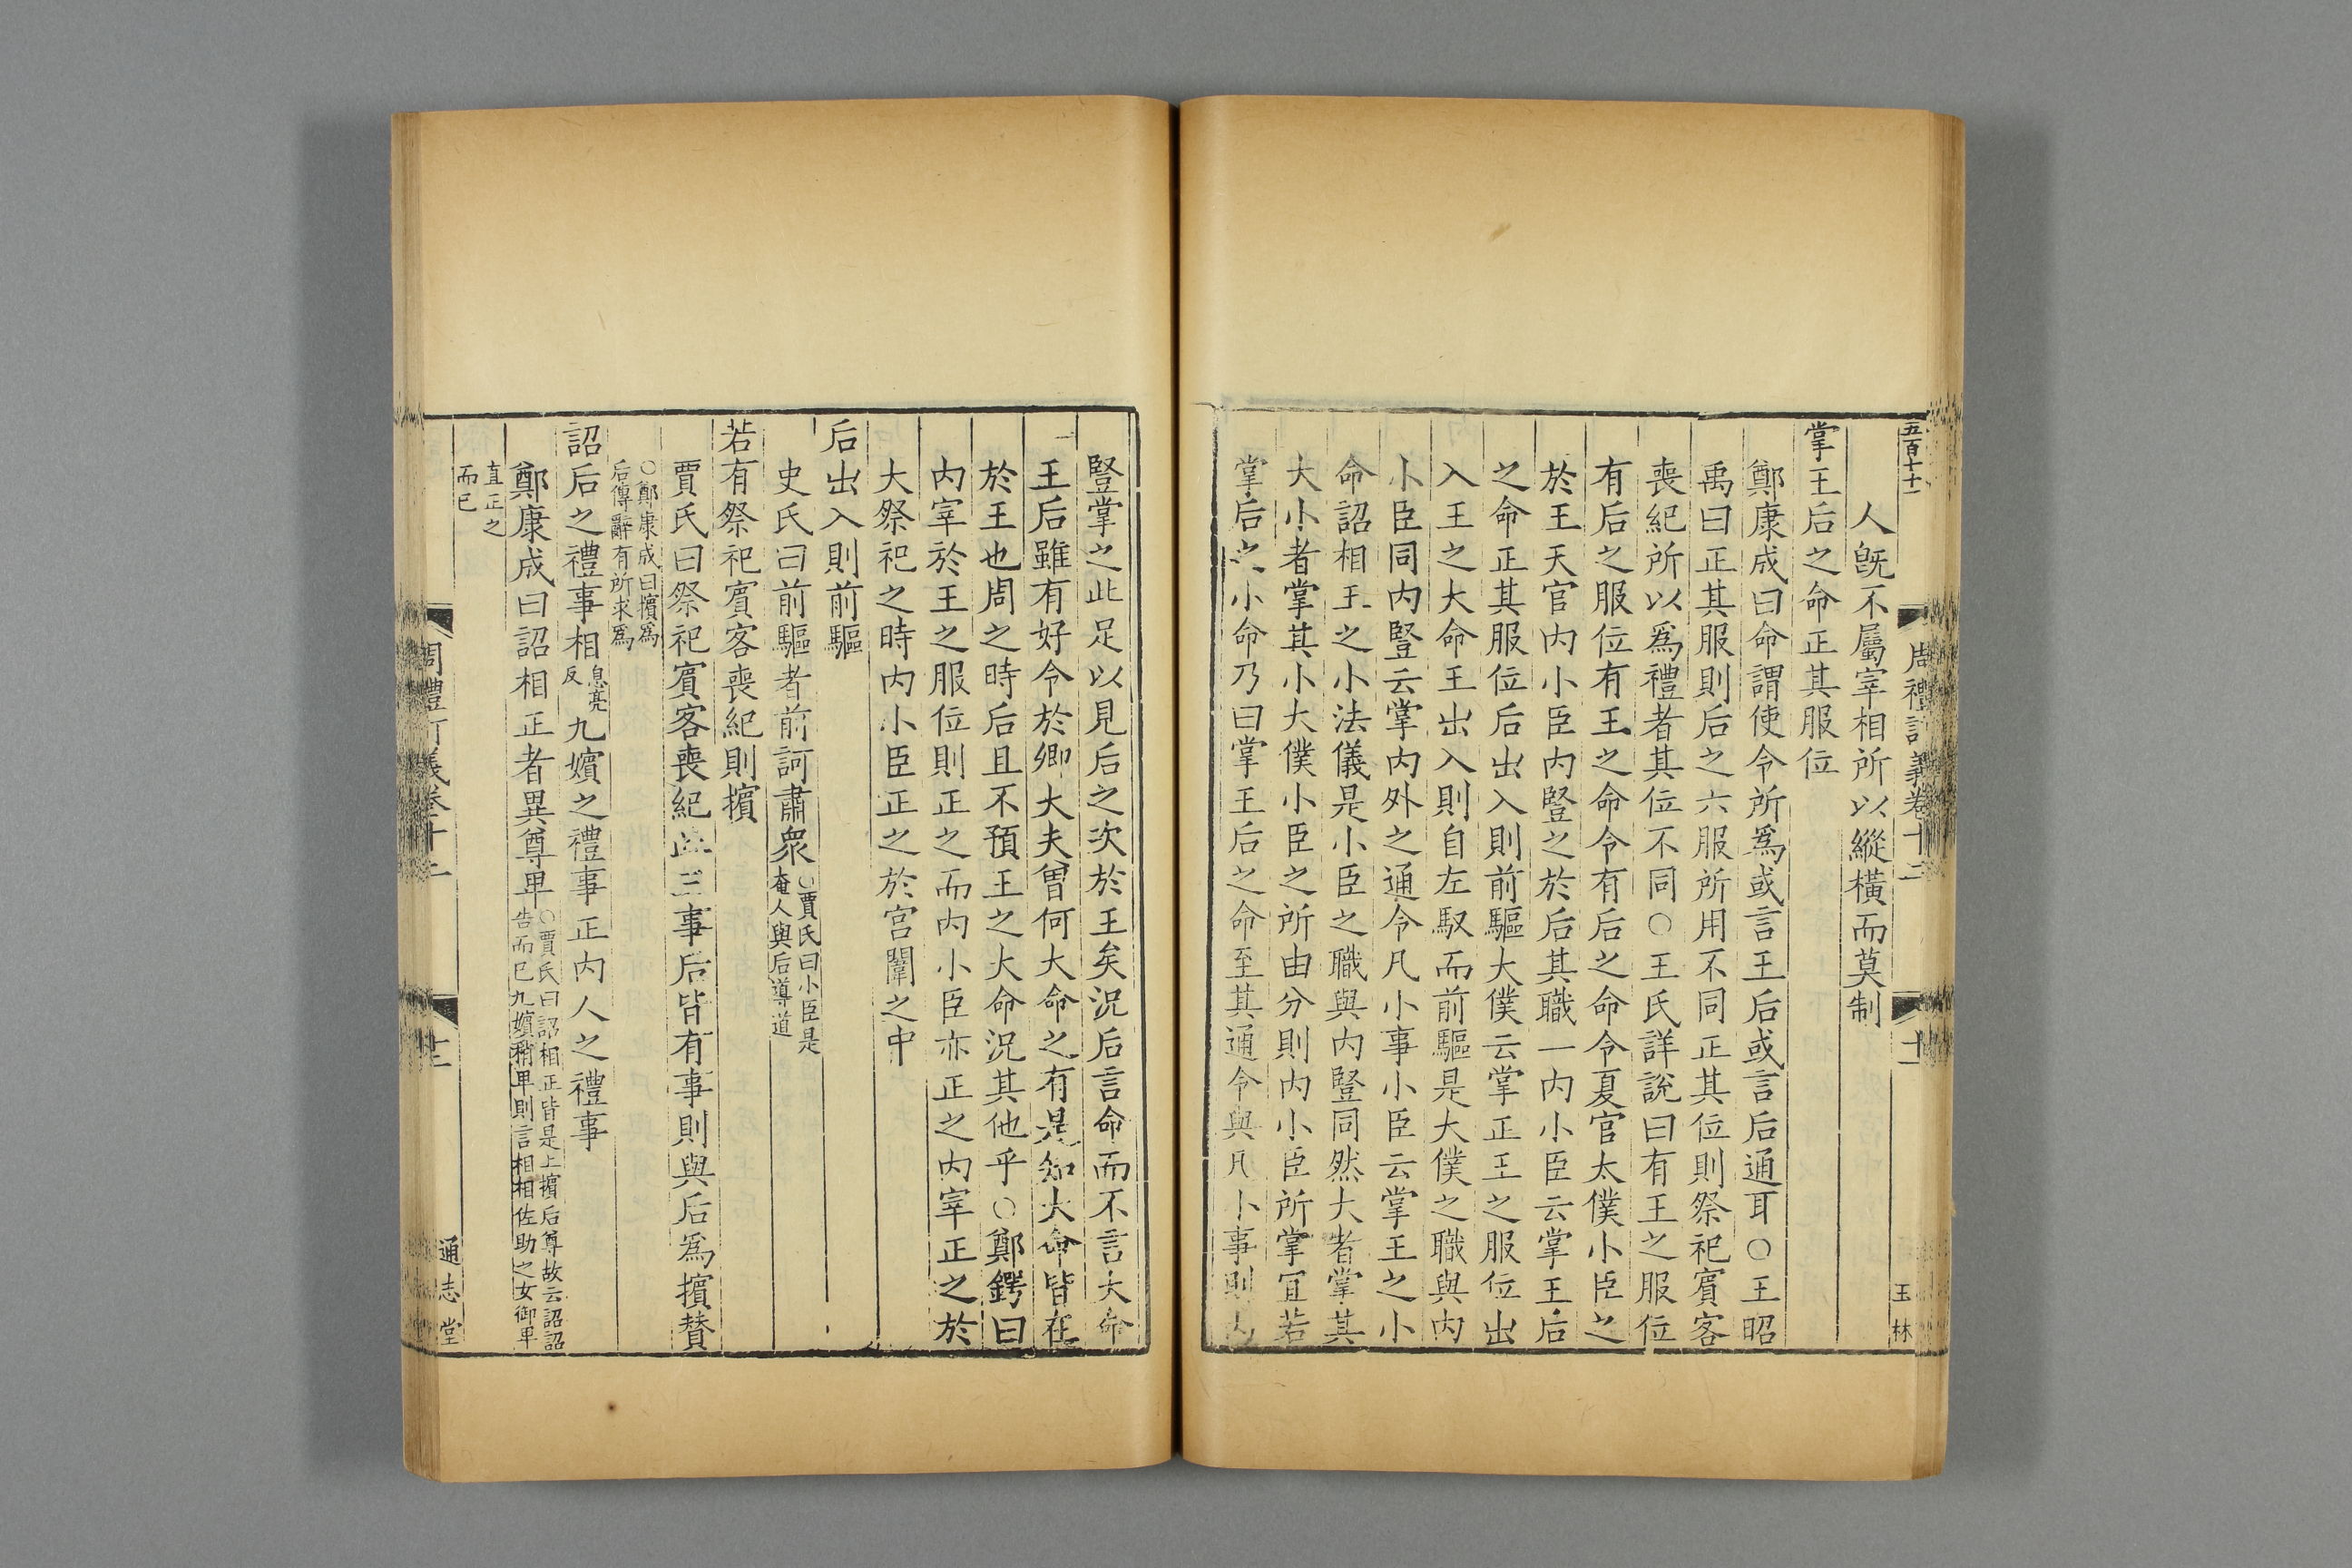 五百十十一
周禮訂義卷十二
十一
玉林
人旣不屬宰相所以縱橫而莫制
掌王后之命正其服位
鄭康成曰命謂使令所爲或言王后或言后通耳○王昭
禹曰正其服則后之六服所用不同正其位則祭祀賓客
喪紀所以爲禮者其位不同○王氏詳說曰有王之服位
有后之服位有王之命令有后之命令夏官太僕小臣之
於王天官内小臣内豎之於后其職一内小臣云掌王后
之命正其服位后出入則前驅大僕云掌正王之服位出
入王之大命王出入則自左馭而前驅是大僕之職與内
小臣同内豎云掌内外之通令凡小事小臣云掌王之小
命詔相王之小法儀是小臣之職與内豎同然大者掌其
大小者掌其小大僕小臣之所由分則内小臣所掌宜若
掌后之小命乃曰掌王后之命至其通令與凡小事則内
豎掌之此足以見后之次於王矣況后言命而不言大命
王后雖有好令於卿大夫曾何大命之有是知大命皆在
於王也周之時后且不預王之大命況其他乎○鄭鍔曰
内宰於王之服位則正之而内小臣亦正之内宰正之於
大祭祀之時内小臣正之於宫闈之中
后出入則前驅
史氏曰前驅者前訶肅衆○賈氏曰小臣是
奄人與后導道
若有祭祀賓客喪紀則擯
賈氏曰祭祀賓客喪紀此三事后皆有事則與后爲擯贊
○鄭康成曰擯爲
后傳辭有所求爲
詔后之禮事相息亮
反九嬪之禮事正内人之禮事
鄭康成曰詔相正者異尊卑○賈氏曰詔相正皆是上擯后尊故云詔詔
告而已九嬪稍卑則言相相佐助之女御卑
直正之
而已
周禮訂義卷十二
通志堂